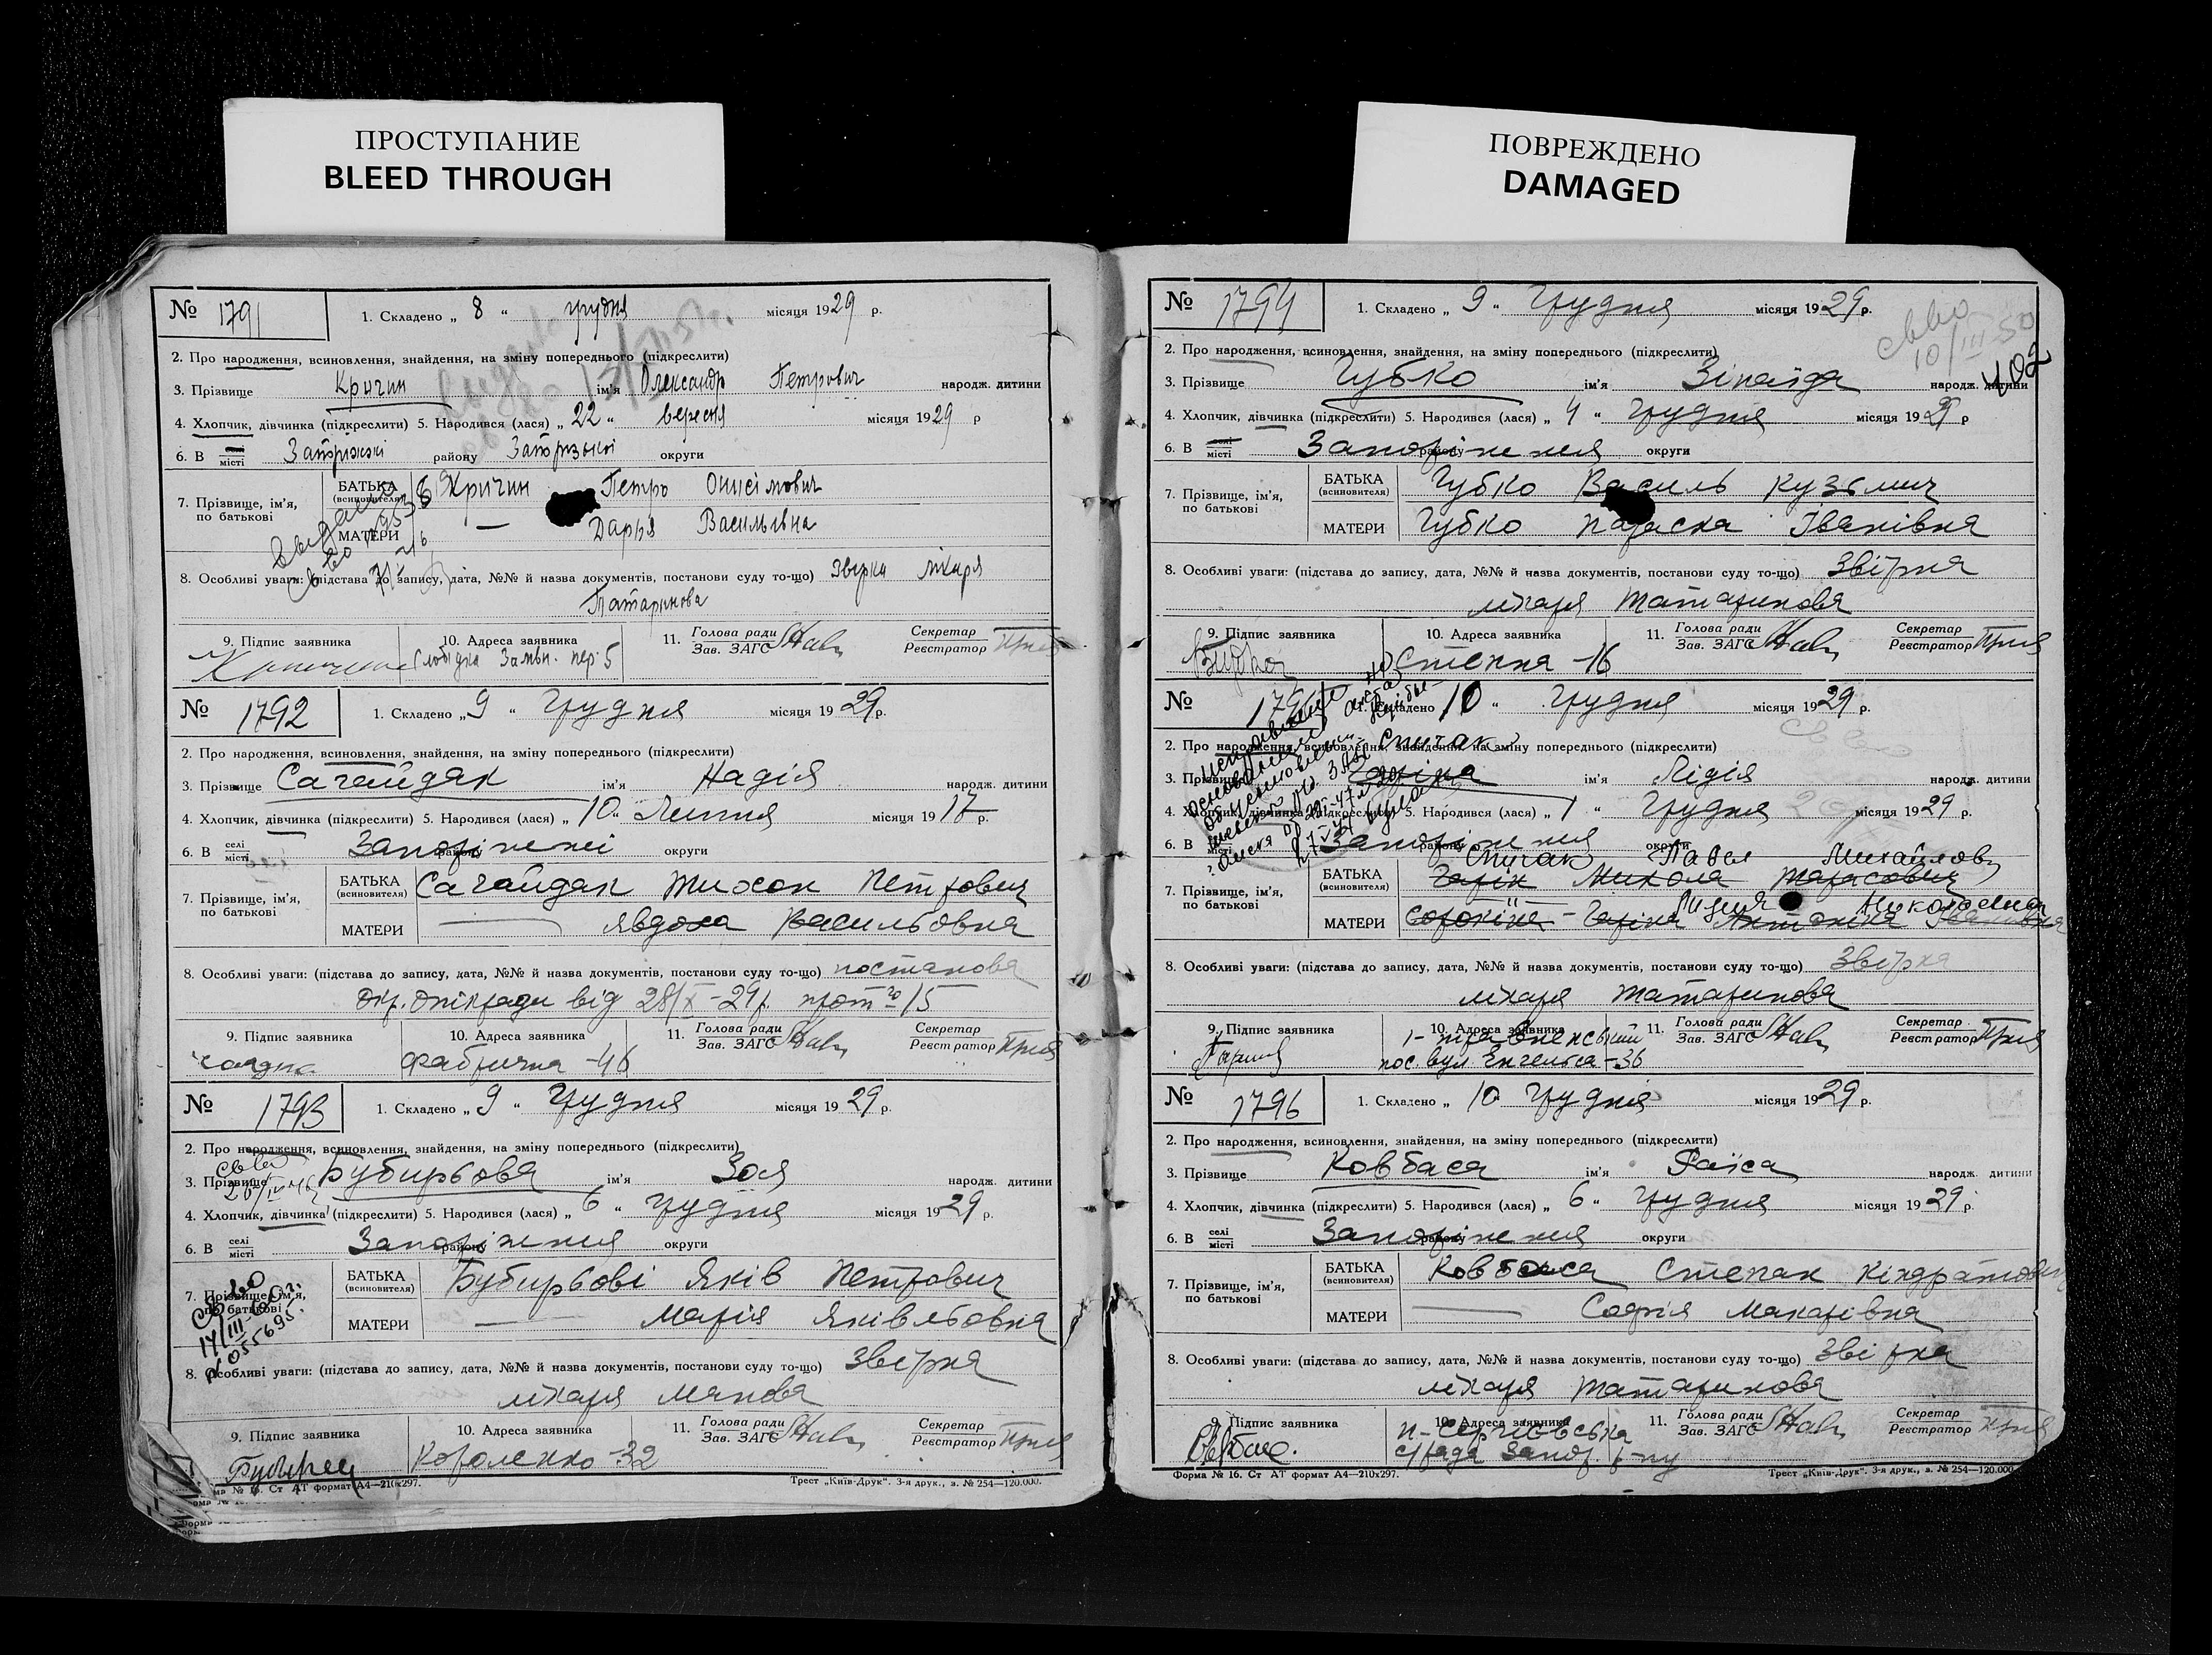 ПРОСТУПАНИЕ
BLEED THROUGH
ПОВРЕЖДЕНО
DAMAGED
№ 1791 1. Складено „ 8 “ грудня місяця 1929 р.
2. Про народження, всиновлення, знайдення, на зміну попереднього (підкреслити)
3. Прізвище Кричин ім'я Олександр Петрович народж. дитини
4. Хлопчик, дівчинка (підкреслити) 5. Народився (лася) „ 22 “ вересня місяця 1929 р
6. В селі місті Запоріжжі району Запорізької округи
7. Прізвище, ім'я, по батькові
БАТЬКА (всиновителя) Кричин Петро Онисімович
МАТЕРИ — Дарья Васильівна
8. Особливі уваги: (підстава до запису, дата, №№ й назва документів, постанови суду то-що) Звірка лікаря
Татаринова
9. Підпис заявника 10. Адреса заявника 11. Голова ради Зав. ЗАГС Секретар Реєстратор
Слобідка Замвн. пер. 5
№ 1792 1. Складено „ 9 “ Грудня місяця 1929 р.
2. Про народження, всиновлення, знайдення, на зміну попереднього (підкреслити)
3. Прізвище Сагайдак ім'я Надія народж. дитини
4. Хлопчик, дівчинка (підкреслити) 5. Народився (лася) „ 10 “ Липня місяця 1917 р.
6. В селі місті Запоріжжі району округи
7. Прізвище, ім'я, по батькові
БАТЬКА (всиновителя) Сагайдак Тихон Петрович
МАТЕРИ — Явдоха Васильовна
8. Особливі уваги: (підстава до запису, дата, №№ й назва документів, постанови суду то-що) постанова
окр. опікради від 28/X-29р. прот № 15
9. Підпис заявника 10. Адреса заявника 11. Голова ради Зав. ЗАГС Секретар Реєстратор
Фабрична - 46
№ 1793 1. Складено „ 9 “ Грудня місяця 1929 р.
2. Про народження, всиновлення, знайдення, на зміну попереднього (підкреслити)
3. Прізвище Бубирьова ім'я Зоя народж. дитини
4. Хлопчик, дівчинка (підкреслити) 5. Народився (лася) „ 6 “ Грудня місяця 1929 р.
6. В селі місті Запоріжжя району округи
7. Прізвище, ім'я, по батькові
БАТЬКА (всиновителя) Бубирьові Яків Петрович
МАТЕРИ — Марія Яківльовна
Св во 17/III-60г. № 055695
8. Особливі уваги: (підстава до запису, дата, №№ й назва документів, постанови суду то-що) Звірка
лікаря
9. Підпис заявника 10. Адреса заявника 11. Голова ради Зав. ЗАГС Секретар Реєстратор
Короленко - 32
Форма № 16. Ст АТ формат А4—210х297. Трест „Київ-Друк“. 3-я друк., з. № 254—120.000.
№ 1794 1. Складено „ 9 “ Грудня місяця 1929 р.
св во 10/III-50
402
2. Про народження, всиновлення, знайдення, на зміну попереднього (підкреслити)
3. Прізвище Губко ім'я Зінаїда народж. дитини
4. Хлопчик, дівчинка (підкреслити) 5. Народився (лася) „ 4 “ Грудня місяця 1929 р
6. В селі місті Запоріжжя району округи
7. Прізвище, ім'я, по батькові
БАТЬКА (всиновителя) Губко Василь Кузьмич
МАТЕРИ Губко Параска Іванівна
8. Особливі уваги: (підстава до запису, дата, №№ й назва документів, постанови суду то-що) Звірка
лікаря Татаринова
9. Підпис заявника 10. Адреса заявника 11. Голова ради Зав. ЗАГС Секретар Реєстратор
Степна - 16
№ 1795 1. Складено 10 “ Грудня місяця 1929 р.
2. Про народження, всиновлення, знайдення, на зміну попереднього (підкреслити)
Спичак
3. Прізвище Гаріна ім'я Лідія народж. дитини
4. Хлопчик, дівчинка (підкреслити) 5. Народився (лася) „ 1 “ Грудня місяця 1929 р.
6. В селі місті Запоріжжя району округи
Спичак Павел Михайлов
7. Прізвище, ім'я, по батькові
БАТЬКА (всиновителя) Гарін Микола Тарасович
Лидия Николаевна
МАТЕРИ Сорокіна - Гаріна Антоніна Іванівна
8. Особливі уваги: (підстава до запису, дата, №№ й назва документів, постанови суду то-що) Звірка
лікаря Татаринова
9. Підпис заявника 10. Адреса заявника 11. Голова ради Зав. ЗАГС Секретар Реєстратор
пос. вул. Енгельса - 36
№ 1796 1. Складено „ 10 Грудня місяця 1929 р.
2. Про народження, всиновлення, знайдення, на зміну попереднього (підкреслити)
3. Прізвище Ковбаса ім'я Раїса народж. дитини
4. Хлопчик, дівчинка (підкреслити) 5. Народився (лася) „ 6 “ Грудня місяця 1929 р.
6. В селі місті Запоріжжя району округи
7. Прізвище, ім'я, по батькові
БАТЬКА (всиновителя) Ковбаса Степан Кіндратович
МАТЕРИ — Софія Макарівна
8. Особливі уваги: (підстава до запису, дата, №№ й назва документів, постанови суду то-що) Звірка
лікаря Татаринова
9. Підпис заявника 10. Адреса заявника 11. Голова ради Зав. ЗАГС Секретар Реєстратор
с/рада Запор. р-ну
Форма № 16. Ст АТ формат А4—210х297. Трест „Київ-Друк“. 3-я друк., з. № 254—120.000.